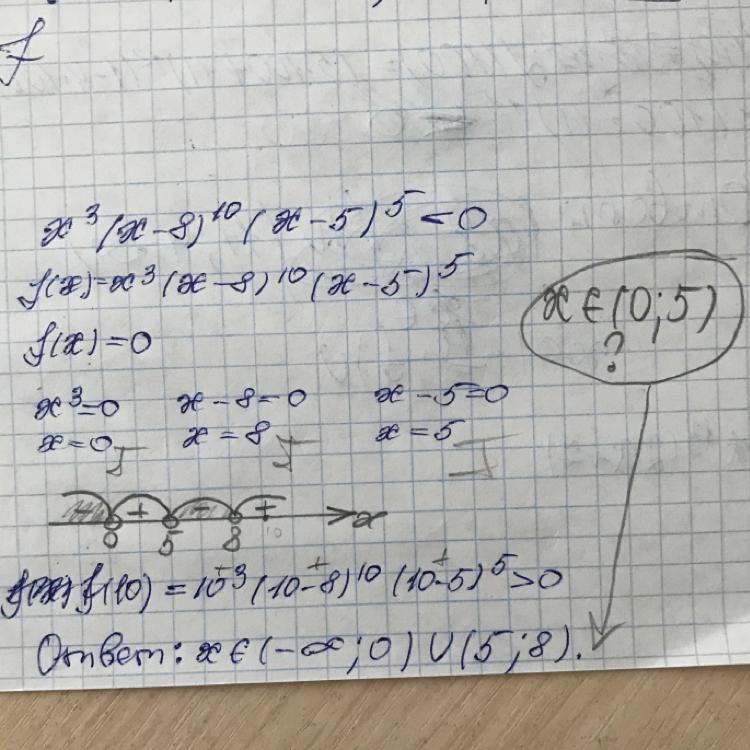 x³(x-8)¹⁰(x-5)⁵<0
f(x)=x³(x-8)¹⁰(x-5)⁵
f(x)=0
x∈(0;5)
?
x³=0 x-8=0 x-5=0
x=0 x=8 x=5
- + - + x
0 5 8 10
f(10)=10³(10-8)¹⁰(10-5)⁵>0
+ + +
Ответ: x∈(-∞;0)∪(5;8).